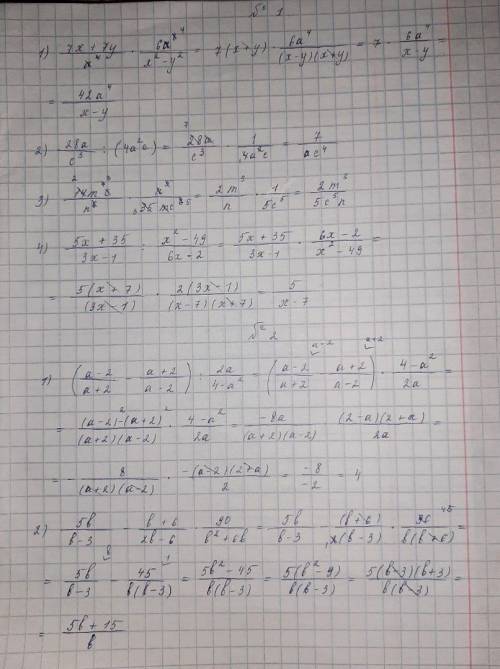 № 1
1) (7x + 7y)/x⁴ · 6a⁴x⁴/(x² - y²) = 7(x + y) · 6a⁴/((x - y)(x + y)) = 7 · 6a⁴/(x - y) =
= 42a⁴/(x - y)
2) 28a/c³ : (4a²c) = 28a/c³ · 1/(4a²c) = 7/(ac⁴)
= 2m³/n · 1/(5c⁵) = 2m³/(5c⁵n)
4) (5x + 35)/(3x - 1) : (x² - 49)/(6x - 2) = (5x + 35)/(3x - 1) · (6x - 2)/(x² - 49) =
= 5(x + 7)/(3x - 1) · 2(3x - 1)/((x - 7)(x + 7)) = 5/(x - 7)
№ 2
1) ((a - 2)/(a + 2) - (a + 2)/(a - 2)) : 2a/(4 - a²) = ((a - 2)/(a + 2) - (a + 2)/(a - 2)) · (4 - a²)/2a =
= ((a - 2)² - (a + 2)²)/((a + 2)(a - 2)) · (4 - a²)/2a = -8a/((a + 2)(a - 2)) (2 - a)(2 + a)/2a =
= - 8/((a + 2)(a - 2)) · -(a - 2)(2 + a)/2 = -8/-2 = 4
2) 5b/(b - 3) - (b + 6)/(2b - 6) · 90/(b² + 6b) = 5b/(b - 3) - (b + 6)/(2(b - 3)) · 90/(b(b + 6)) =
= 5b/(b - 3) - 45/(b(b - 3)) = (5b² - 45)/(b(b - 3)) = 5(b² - 9)/(b(b - 3)) = 5(b - 3)(b + 3)/(b(b - 3)) =
= (5b + 15)/b